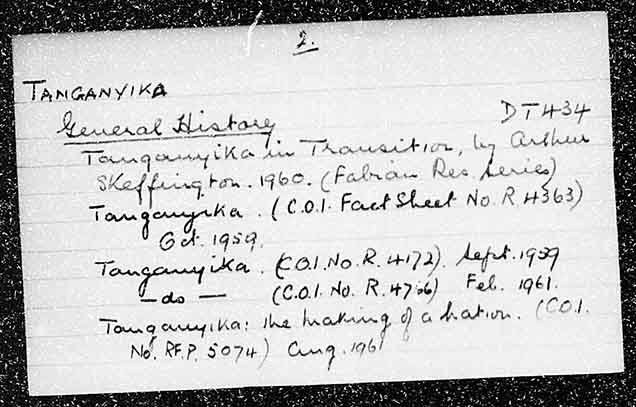 2.
TANGANYIKA
General History DT434
Tanganyika in Transition, by Arthur
Skeffington. 1960. (Fabian Res. Series)
Tanganyika. (C.O.I. Fact Sheet No. R 4363)
Oct. 1959.
Tanganyika. (C.O.I. No. R. 4172). Sept. 1959
— do — (C.O.I. No. R. ) Feb. 1961.
Tanganyika: the making of a nation. (C.O.I.
No. RF.P. 5074) Aug. 1961